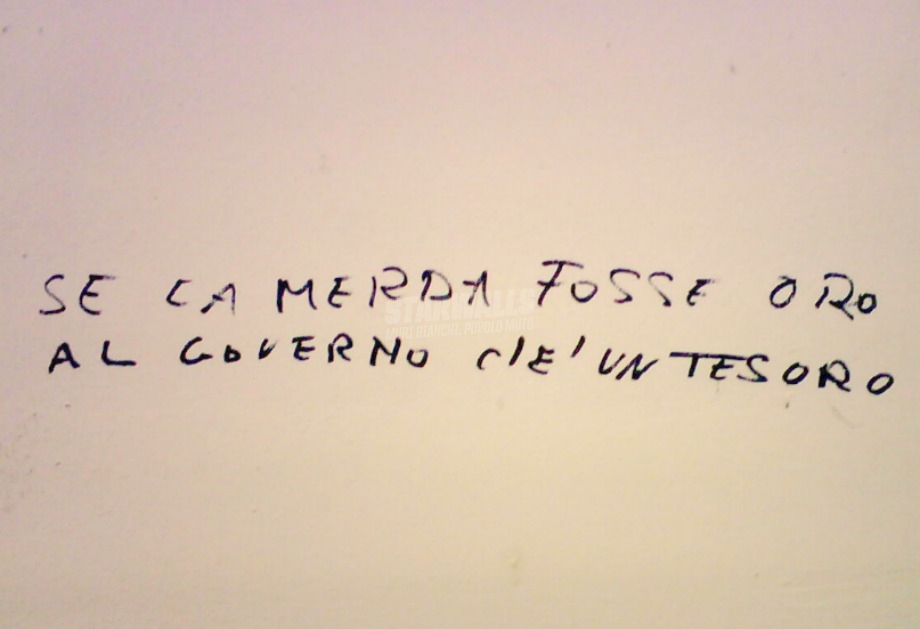 SE LA MERDA FOSSE ORO
STARWALLS
MURI BIANCHI, POPOLO MUTO
AL GOVERNO C'E' UN TESORO